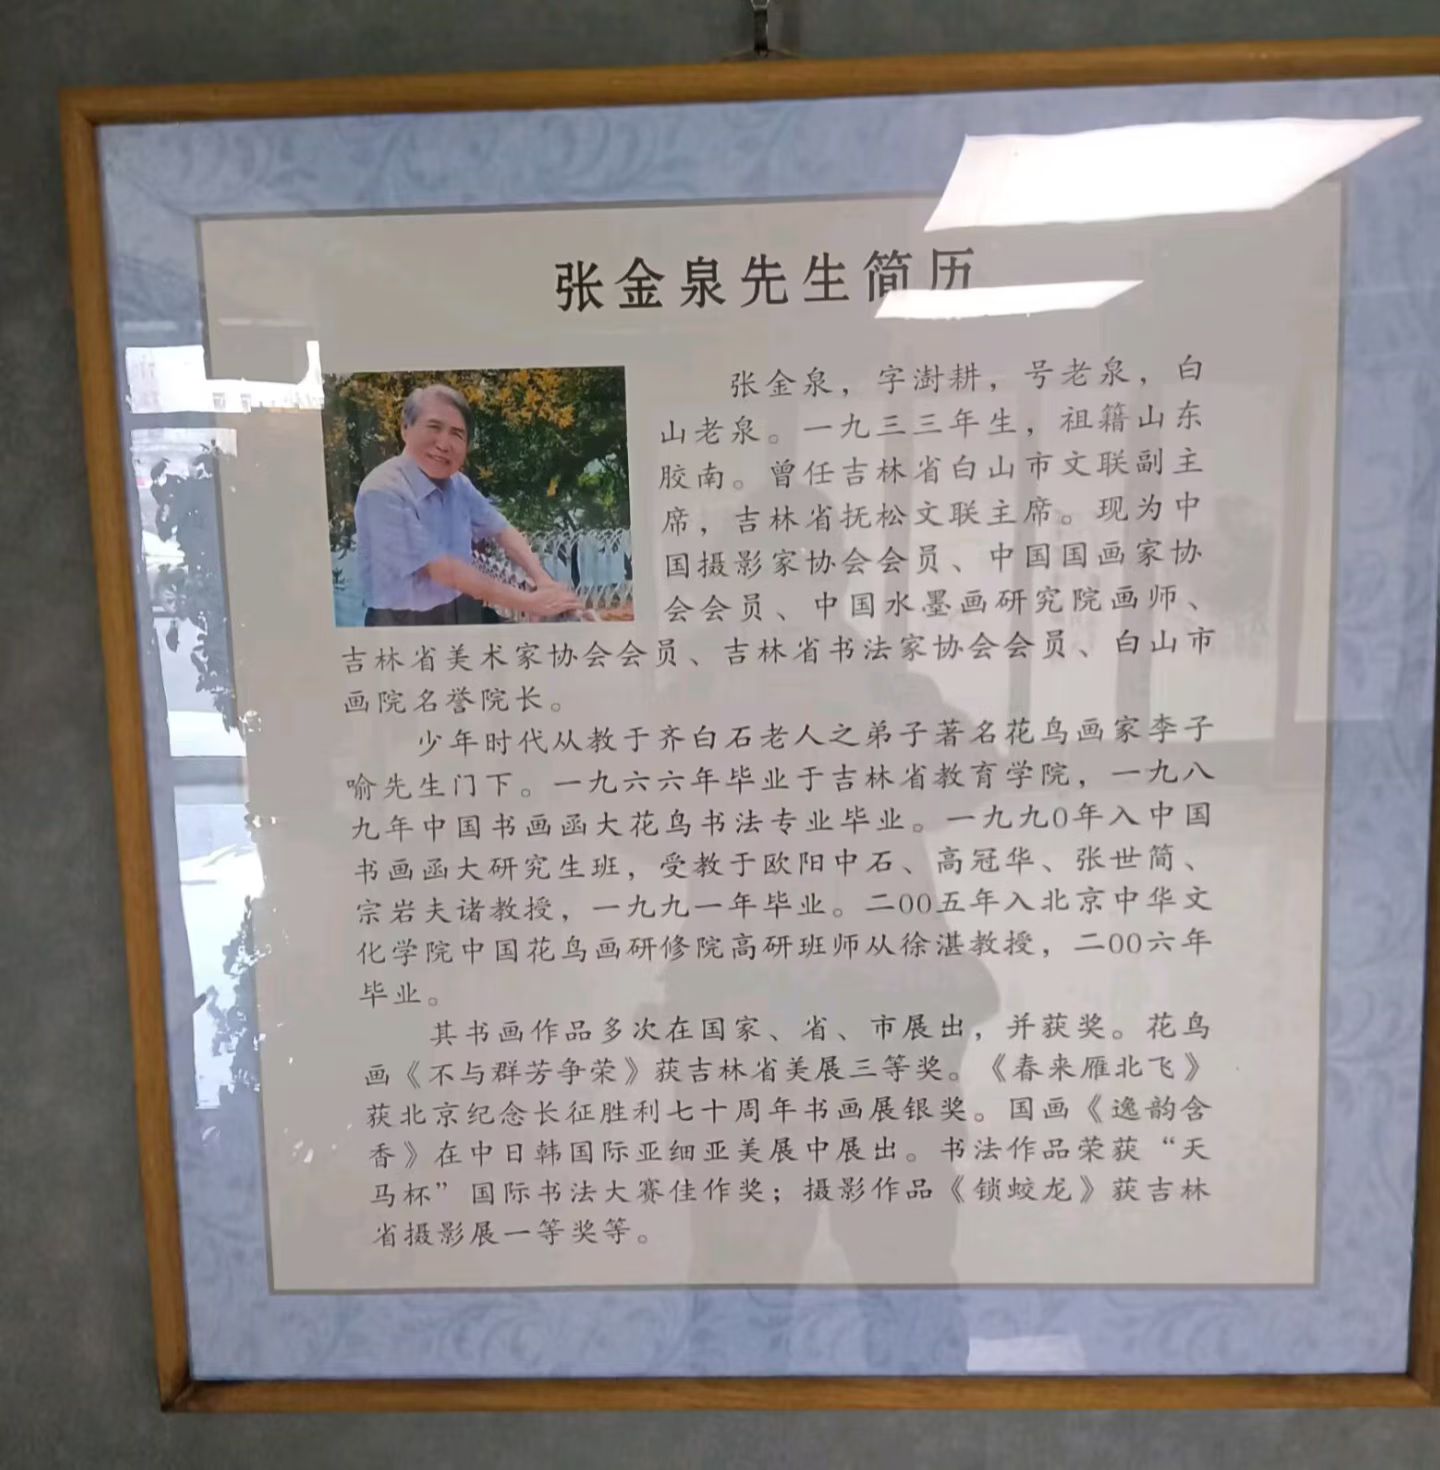 张金泉先生简历
张金泉，字澍耕，号老泉，白
山老泉。一九三三年生，祖籍山东
胶南。曾任吉林省白山市文联副主
席，吉林省抚松文联主席。现为中
国摄影家协会会员、中国国画家协
会会员、中国水墨画研究院画师、
吉林省美术家协会会员、吉林省书法家协会会员、白山市
画院名誉院长。
少年时代从教于齐白石老人之弟子著名花鸟画家李子
喻先生门下。一九六六年毕业于吉林省教育学院，一九八
九年中国书画函大花鸟书法专业毕业。一九九0年入中国
书画函大研究生班，受教于欧阳中石、高冠华、张世简、
宗岩夫诸教授，一九九一年毕业。二00五年入北京中华文
化学院中国花鸟画研修院高研班师从徐湛教授，二00六年
毕业。
其书画作品多次在国家、省、市展出，并获奖。花鸟
画《不与群芳争荣》获吉林省美展三等奖。《春来雁北飞》
获北京纪念长征胜利七十周年书画展银奖。国画《逸韵含
香》在中日韩国际亚细亚美展中展出。书法作品荣获“天
马杯”国际书法大赛佳作奖；摄影作品《锁蛟龙》获吉林
省摄影展一等奖等。